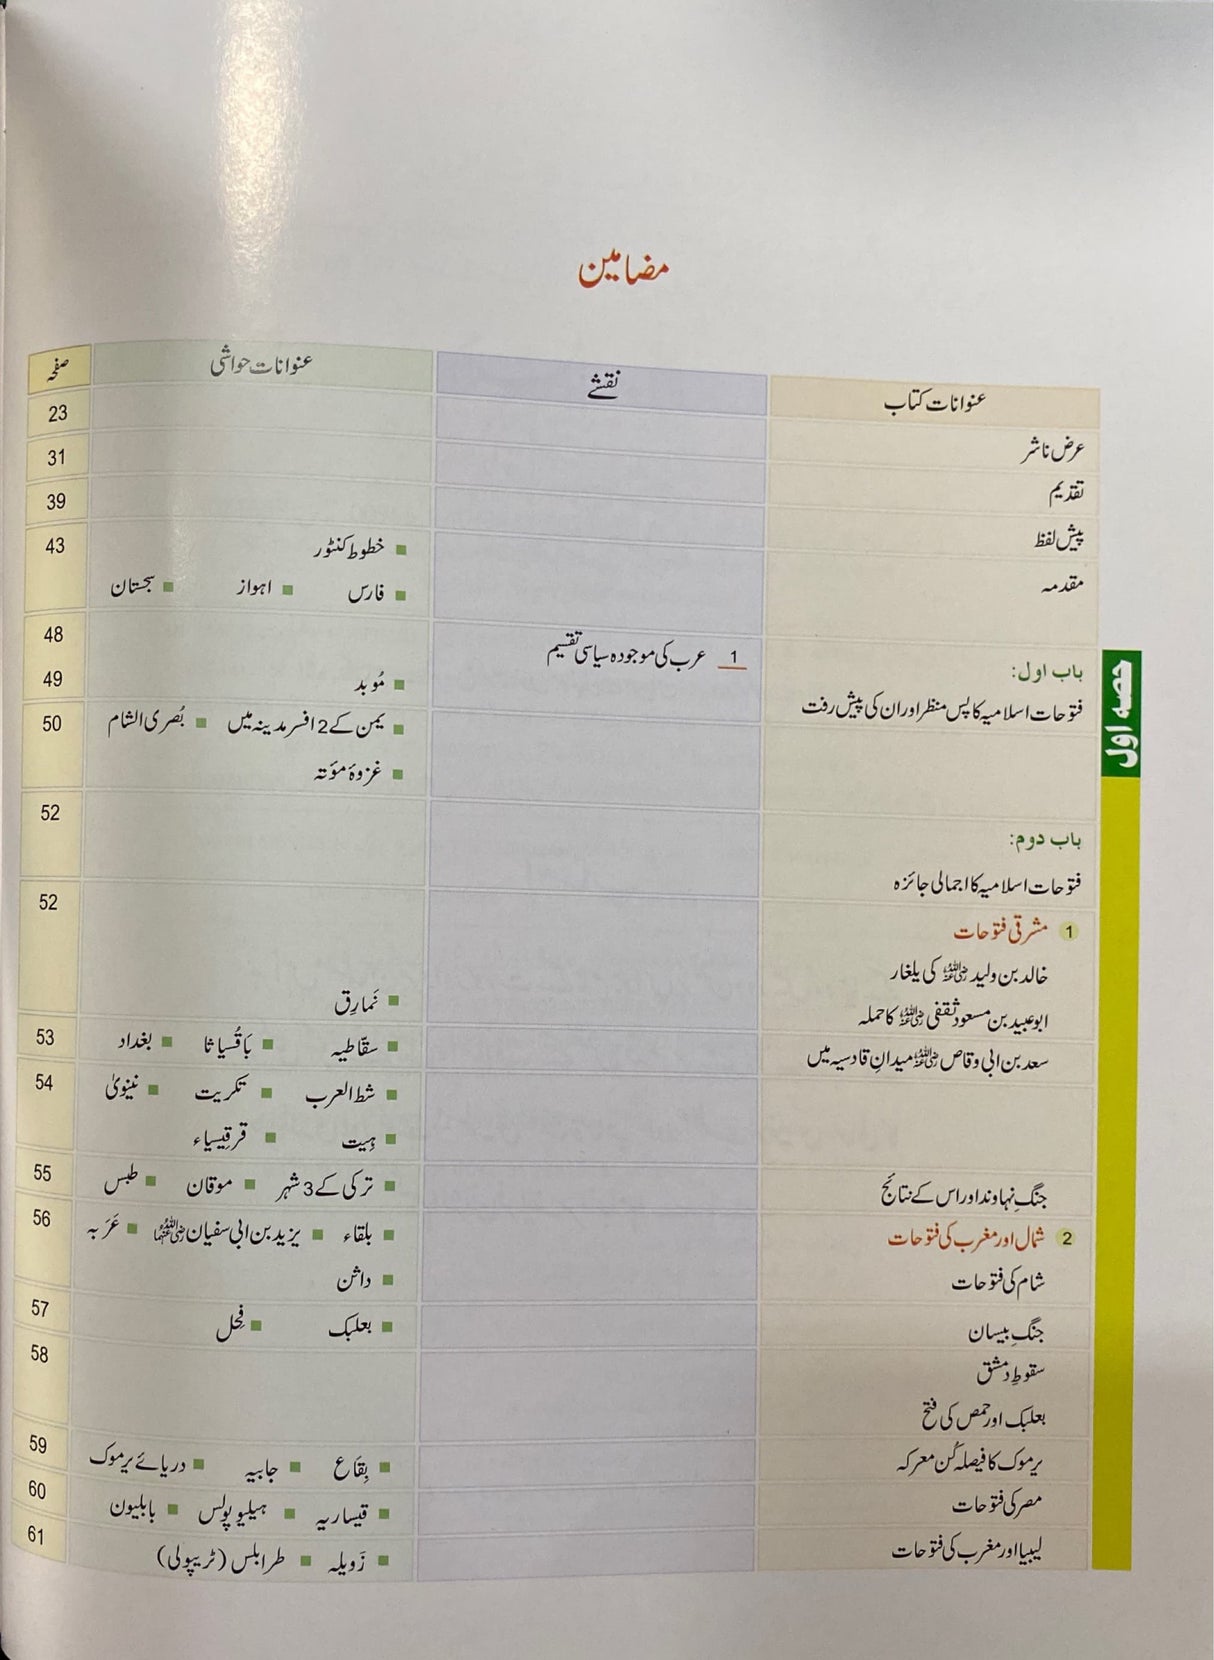 مضامین
عنوانات کتاب نقشے عنوانات حواشی صفحہ
عرض ناشر 23
تقدیم 31
پیش لفظ 39
مقدمہ ■ خطوط کنٹور 43
■ فارس ■ اہواز ■ سجستان
حصہ اول
باب اول: 1 عرب کی موجودہ سیاسی تقسیم 48
فتوحات اسلامیہ کا پس منظر اور ان کی پیش رفت ■ مُوبد 49
■ یمن کے 2 افسر مدینہ میں ■ بُصریٰ الشام 50
■ غزوۂ موتہ
باب دوم: 52
فتوحات اسلامیہ کا اجمالی جائزہ
1 مشرقی فتوحات 52
خالد بن ولید رضی اللہ عنہ کی یلغار
ابوعبید بن مسعود ثقفی رضی اللہ عنہ کا حملہ ■ نَمارِق
سعد بن ابی وقاص رضی اللہ عنہ میدانِ قادسیہ میں ■ سقاطیہ ■ بَاقُسیاثا ■ بغداد 53
■ شط العرب ■ تکریت ■ نینویٰ 54
■ ہِیت ■ قرقِیسیاء
جنگِ نہاوند اور اس کے نتائج ■ ترکی کے 3 شہر ■ موقان ■ طبس 55
2 شمال اور مغرب کی فتوحات ■ بلقاء ■ یزید بن ابی سفیان رضی اللہ عنہما ■ عَرَبہ 56
شام کی فتوحات ■ داثن
جنگِ بیسان ■ بعلبک ■ فِحل 57
سقوطِ دمشق 58
بعلبک اور حمص کی فتح
یرموک کا فیصلہ کُن معرکہ ■ بِقَاع ■ جابیہ ■ دریائے یرموک 59
مصر کی فتوحات ■ قیساریہ ■ ہیلیوپولس ■ بابلیون 60
لیبیا اور مغرب کی فتوحات ■ زَویلہ ■ طرابلس (ٹریپولی) 61